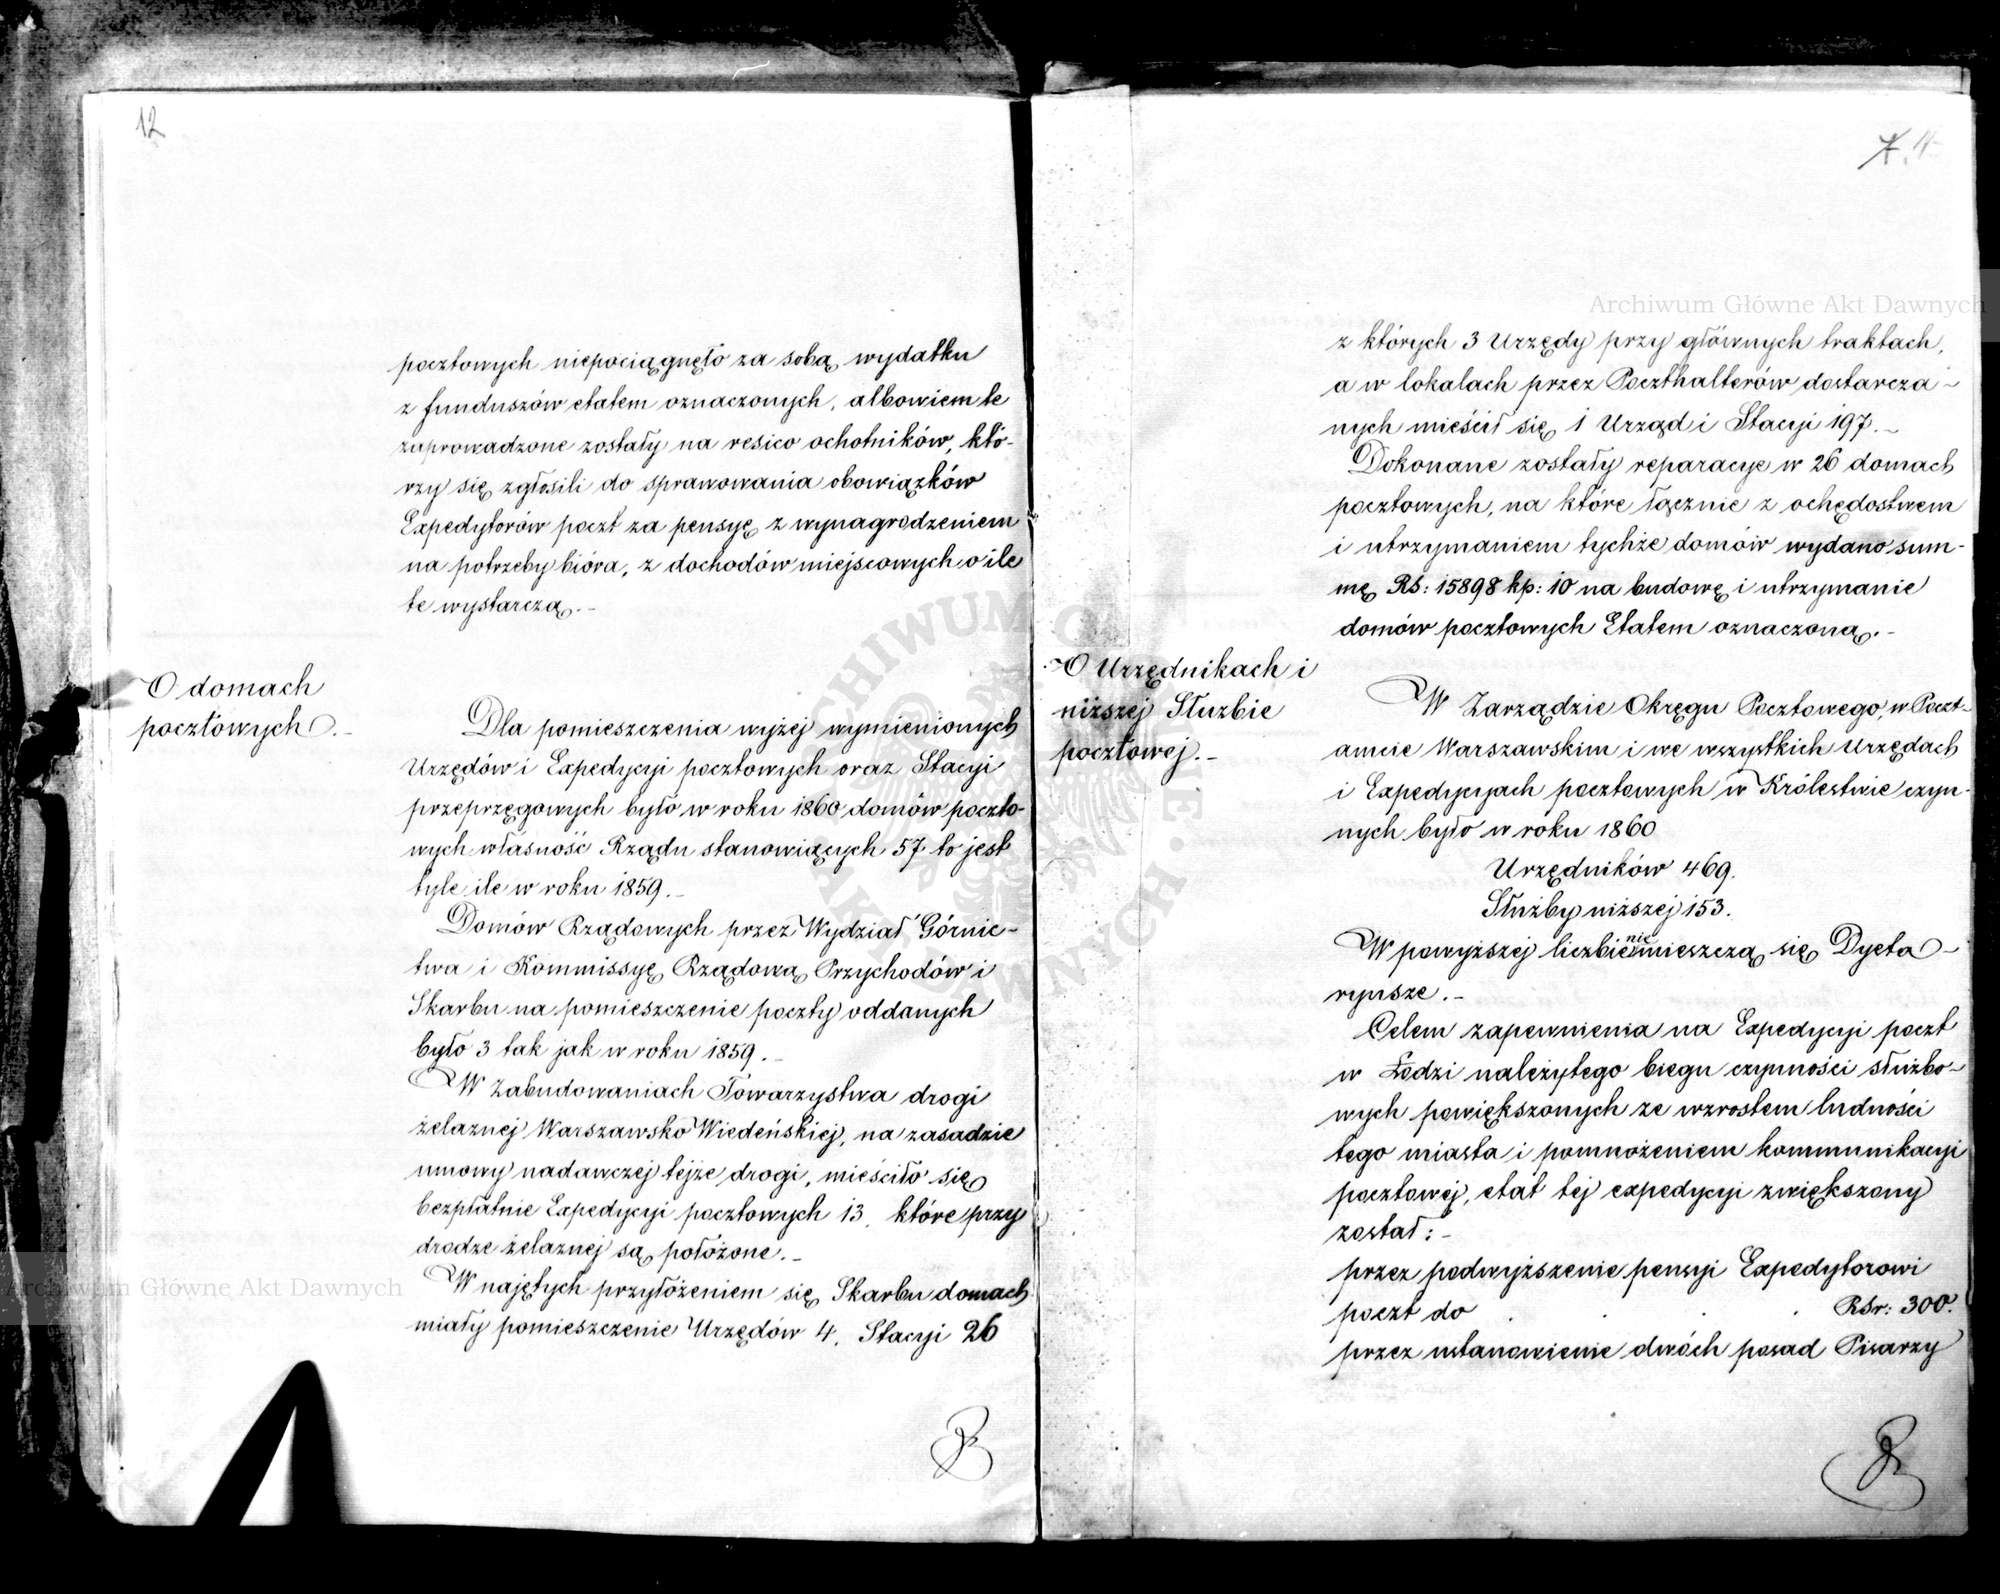 12
pocztowych niepociągnęło za sobą wydatku
z funduszów etatem oznaczonych, albowiem te
zaprowadzone zostały na resico ochotników, któ-
rzy się zgłosili do sprawowania obowiązków
Expedytorów poczt za pensyę z wynagrodzeniem
na potrzeby bióra, z dochodów miejscowych o ile
te wystarczą.-
O domach
pocztowych.-
Dla pomieszczenia wyżej wymienionych
Urzędów i Expedycyi pocztowych oraz Stacyi
przeprzęgowych było w roku 1860 domów poczto-
wych własność Rządu stanowiących 57 to jest
tyle ile w roku 1859.-
Domów Rządowych przez Wydział Górnic-
twa i Kommissyę Rządową Przychodów i
Skarbu na pomieszczenie poczty oddanych
było 3 tak jak w roku 1859.-
W Zabudowaniach Towarzystwa drogi
żelaznej Warszawsko Wiedeńskiej, na zasadzie
umowy nadawczej tejże drogi, mieściło się
bezpłatnie Expedycyi pocztowych 13, które przy
drodze żelaznej są położone.-
W najętych przyłożeniem się Skarbu domach
miały pomieszczenie Urzędów 4, Stacyi 26
z których 3 Urzędy przy głównych traktach,
a w lokalach przez Poczthalterów dostarcza-
nych mieścił się 1 Urząd i Stacyi 197.-
Dokonane zostały reparacye w 26 domach
pocztowych, na które łącznie z ochędostwem
i utrzymaniem tychże domów wydano sum-
mę Rs: 15898 kp: 10 na budowę i utrzymanie
domów pocztowych Etatem oznaczoną.-
O Urzędnikach i
niższej Służbie
pocztowej.-
W Zarządzie Okręgu Pocztowego, w Poczt-
amcie Warszawskim i we wszystkich Urzędach
i Expedycyach pocztowych w Królestwie czyn-
nych było w roku 1860
Urzędników 469.
Służby niższej 153.
W powyższej liczbie nie mieszczą się Dyeta-
ryusze.-
Celem zapewnienia na Expedycyi poczt
w Łodzi należytego biegu czynności służbo-
wych powiększonych ze wzrostem ludności
tego miasta i pomnożeniem kommunikacyi
pocztowej, etat tej expedycyi zwiększony
został:-
przez podwyższenie pensyi Expedytorowi
poczt do . . RSr: 300.
przez ustanowienie dwóch posad Pisarzy
Archiwum Główne Akt Dawnych
Archiwum Główne Akt Dawnych
ARCHIWUM GŁÓWNE AKT DAWNYCH